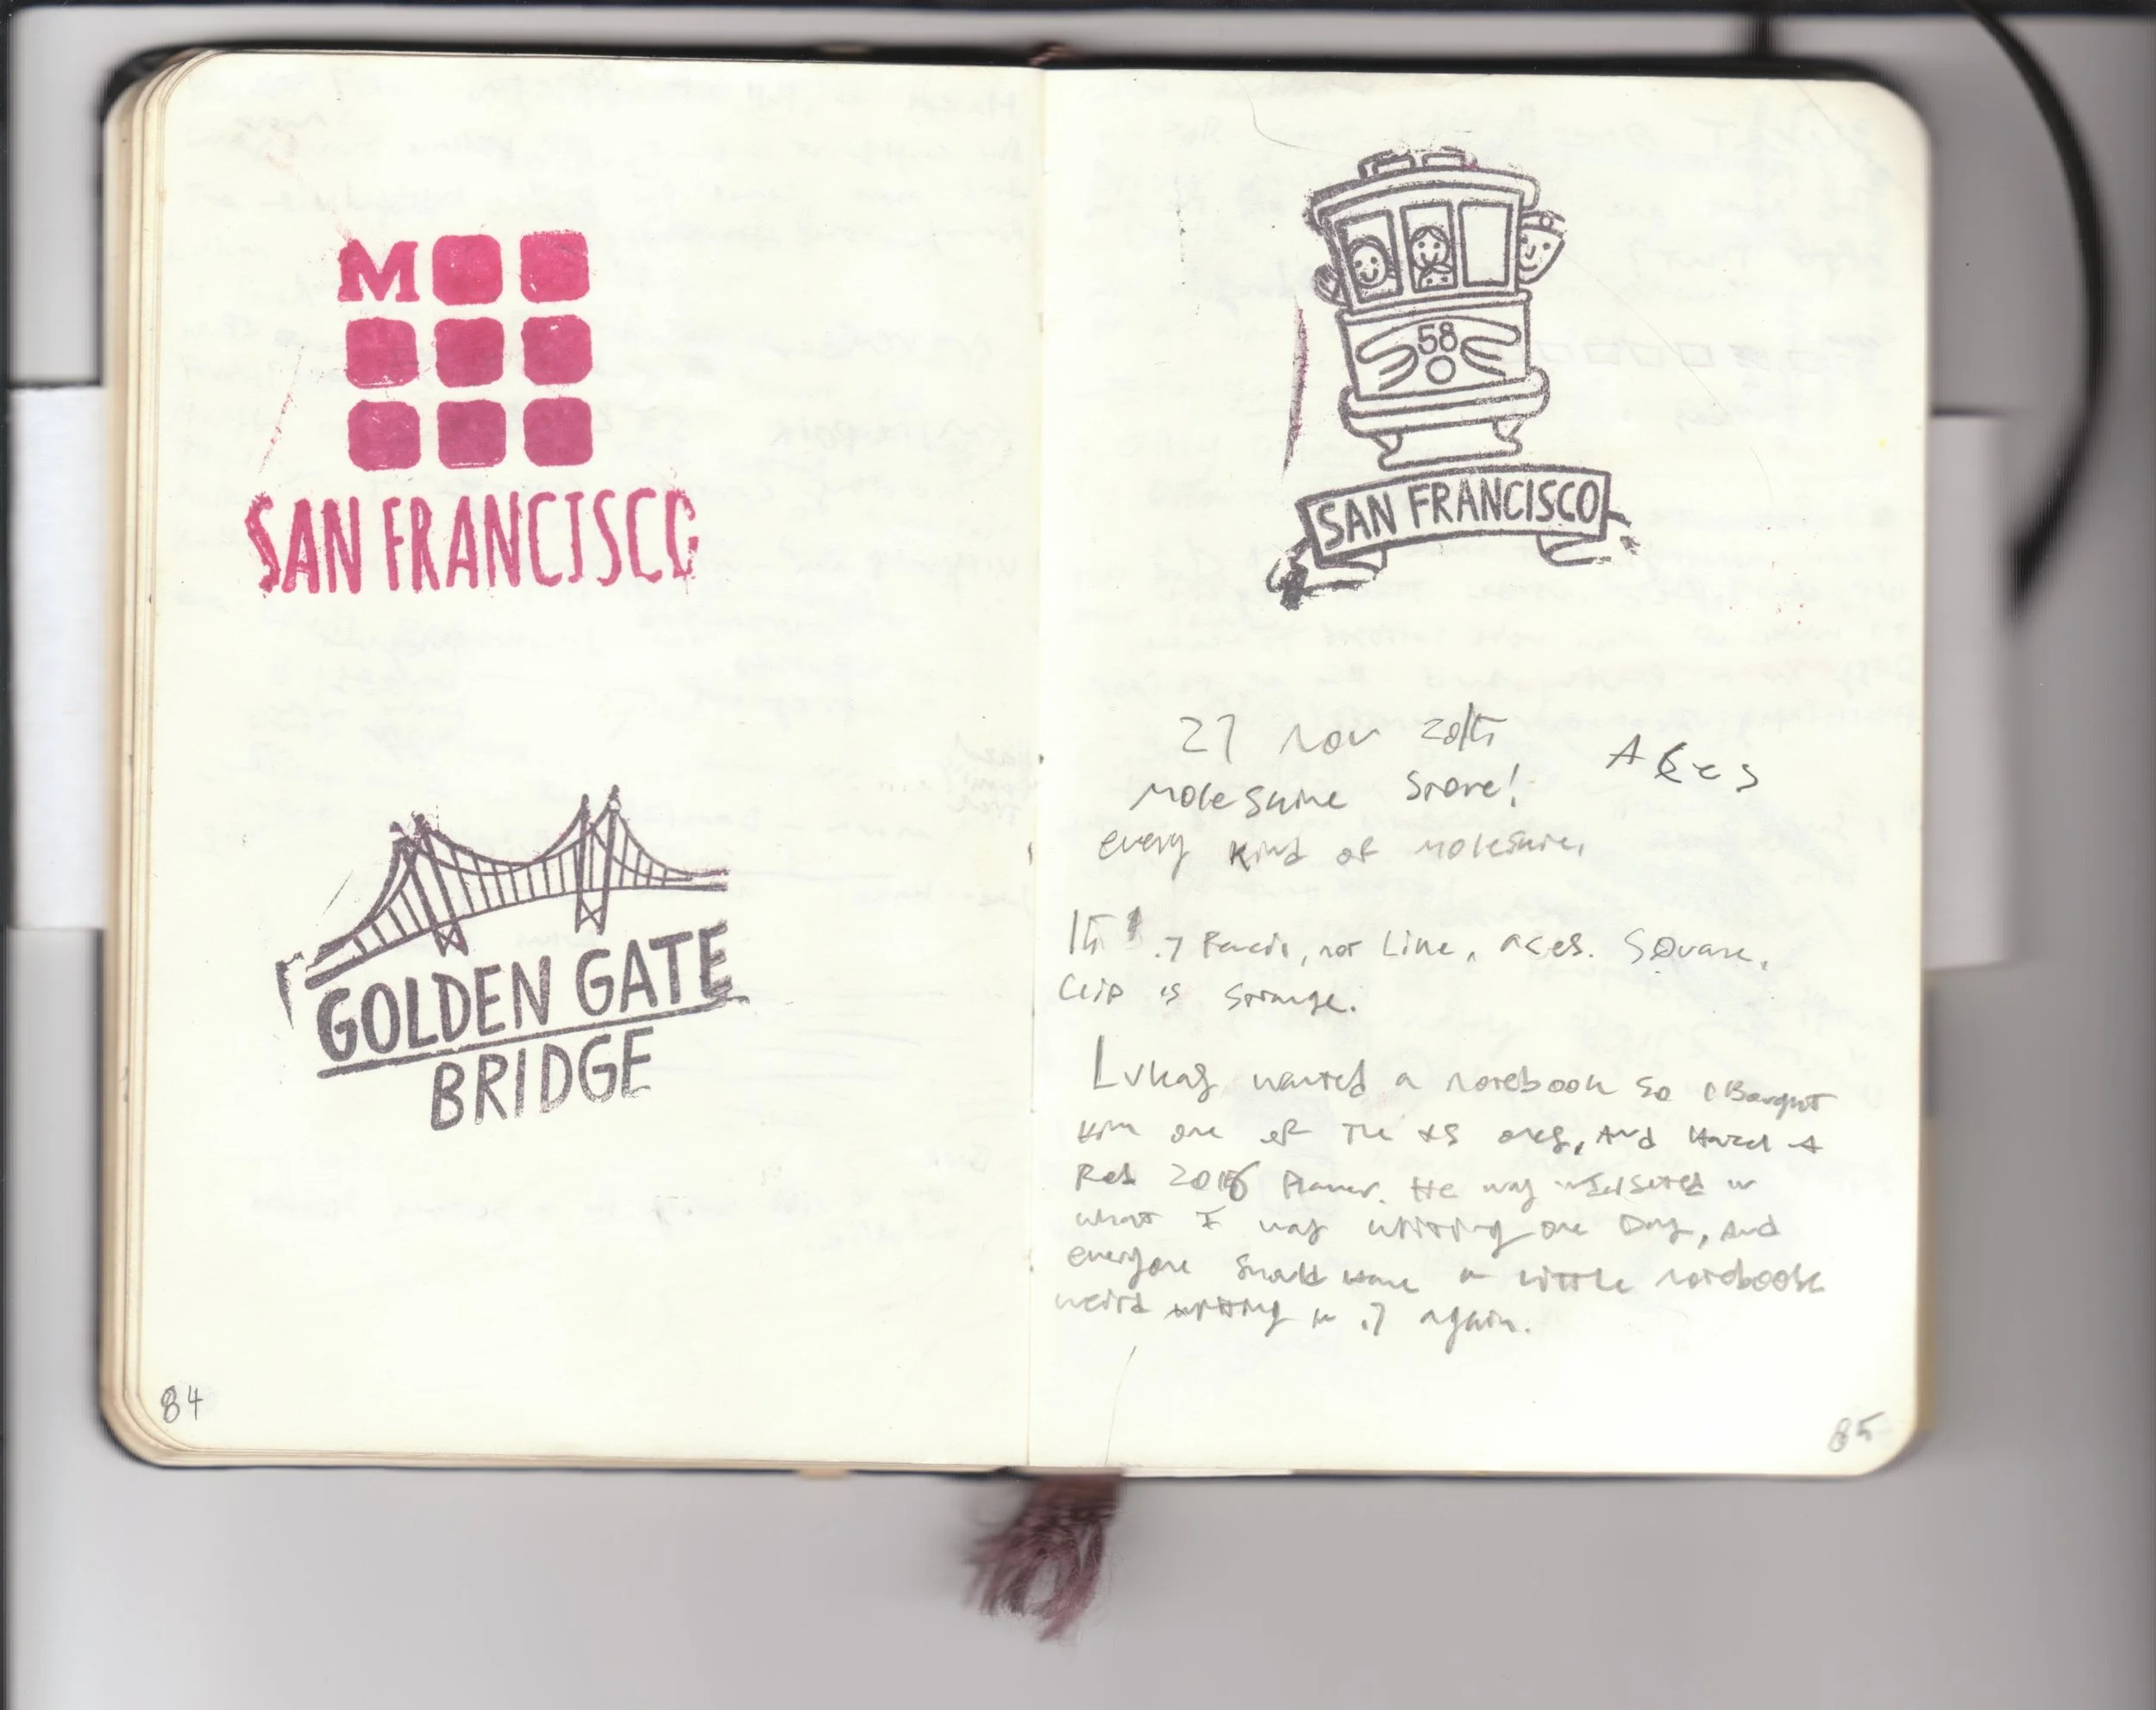 M
SAN FRANCISCO
GOLDEN GATE
BRIDGE
84
58
SAN FRANCISCO
27 Nov
Moleskine Store!
every kind of Moleskine.
.7 Pencil, not Line, Square.
Clip is strange.
Lukas wanted a notebook so I Bought
Him one of The XS ones, And Hazel A
Red 2016 Planner. He was in
what I was writing one Day, And
everyone should Have a Little notebook
weird writing in .7 again.
85